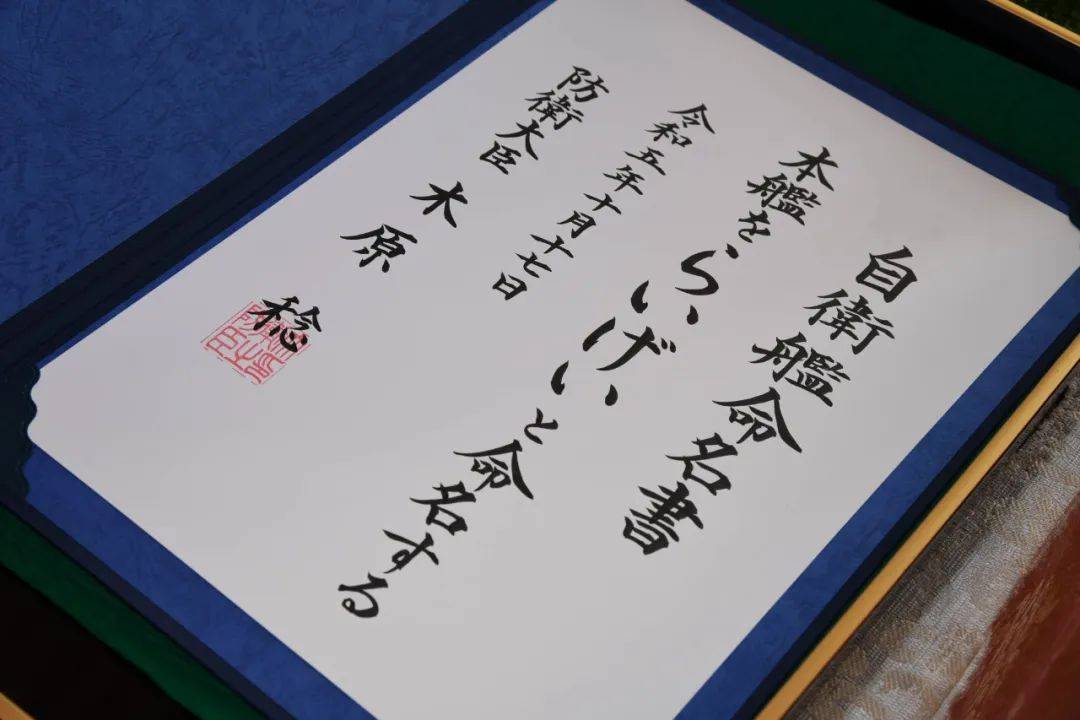 自衛艦命名書
本艦を、らいげいと命名する
令和五年十月十七日
防衛大臣 木原 稔